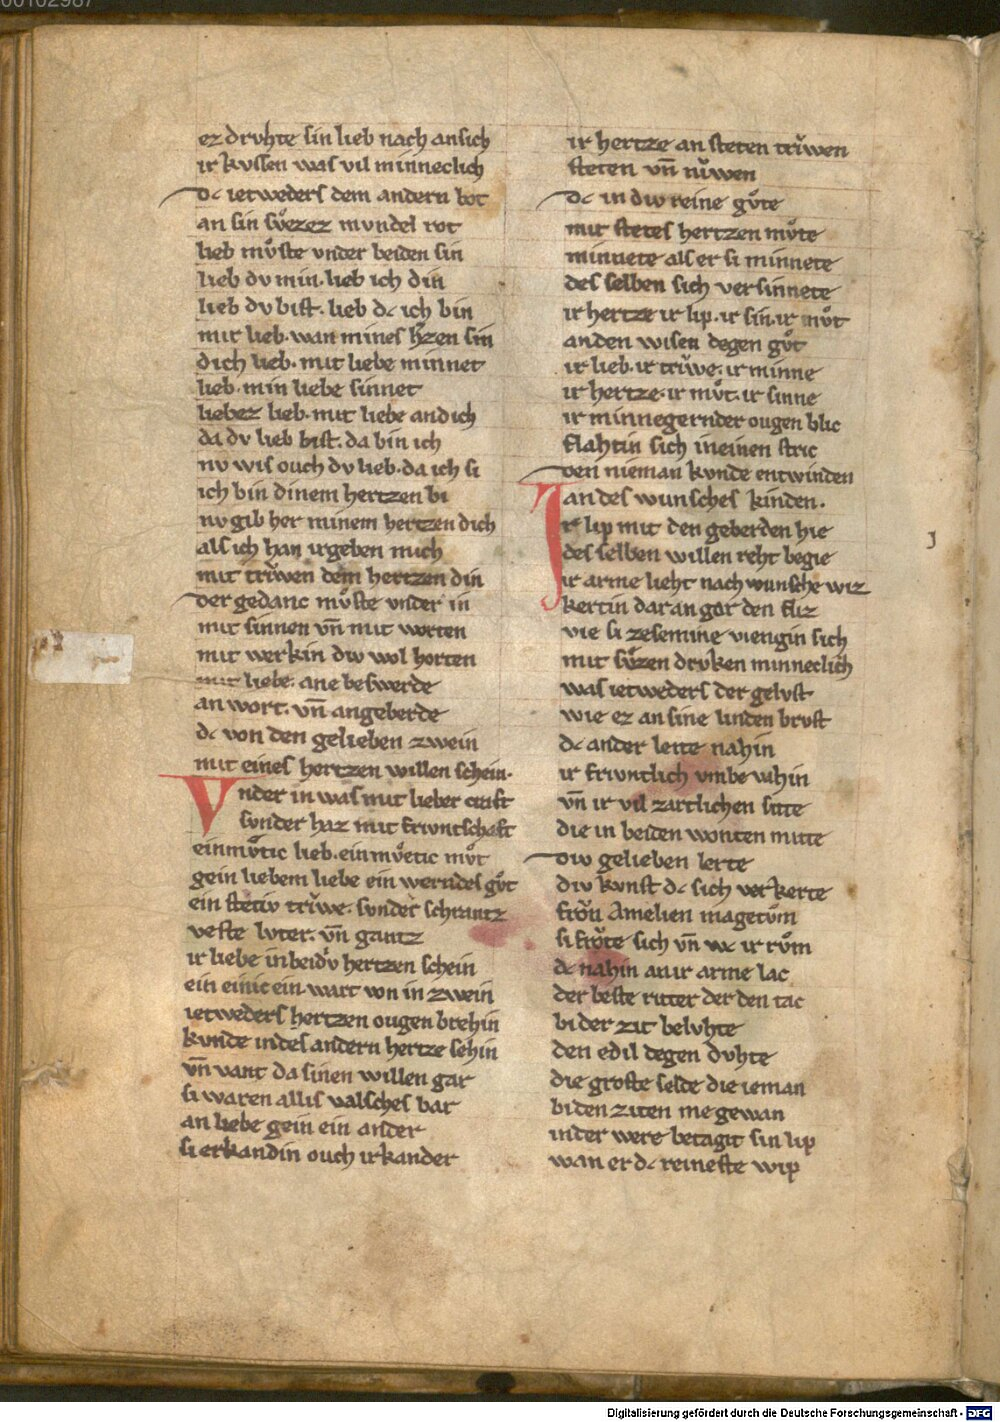 00102987
ez drvhte sin lieb nach an sich
ir kvssen was vil minneclich
dc ietweders dem andern bot
an sin svͦezez mvndel rot
lieb mvͦste vnder beiden sin
lieb dv min. lieb ich din
lieb dv bist. lieb dc ich bin
mit lieb. wan mines hˀzen sin
dich lieb. mit liebe minnet
lieb. min liebe sinnet
liebez lieb. mit liebe an dich
da dv lieb bist. da bin ich
nv wis ouch dv lieb. da ich si
ich bin dinem hertzen bi
nv gib her minem hertzen dich
als ich han irgeben mich
mit trv̌wen dem hertzen din
der gedanc mvͦste vnder in
mit sinnen vn̄ mit worten
mit werkin div wol horten
mit liebe. ane beswerde
an wort. vn̄ an geberde
dc von den gelieben zwein
mit eines hertzen willen schein.
Vnder in was mit lieber craft
svnder haz mit frivntschaft
einmvͦtic lieb. ein mvͦetic mvͦt
gein liebem liebe ein werndes gvͦt
ein stetiv trv̌we. svnder schrantz
veste lvter. vn̄ gantz
ir liebe in beidv hertzen schein
ein einic ein. wart von in zwein
ietweders hertzen ougen brehin
kvnde in des andern hertze sehin
vn̄ vant da sinen willen gar
si waren allis valsches bar
an liebe gein ein ander
si erkandin ouch irkander
ir hertze an steten trv̌wen
steten vn̄ nv̌wen
dc in div reine gvͦte
mit stetes hertzen mvͦte
minnete als er si minnete
des selben sich versinnete
ir hertze ir lip. ir sin. ir mvͦt
an den wisen degen gvͦt
ir lieb. ir trv̌we. ir minne
ir hertze. ir mvͦt. ir sinne
ir minnegernder ougen blic
flahtin sich in einen stric
den nieman kvnde entwinden
an des wunsches kinden.
Ir lip mit den geberden hie
des selben willen reht begie
ir arme lieht nach wunsche wiz
kertin dar an gar den fliz
wie si ze semine viengin sich
mit svͦzen drvken minneclich
was ietweders der gelvst
wie ez an sine linden brvst
dc ander leite nahin
ir frivntlich vmbe vahin
vn̄ ir vil zartlichen sitte
die in beiden wonten mitte
div gelieben lerte
div kvnst dc sich verkerte
froͮn Amelien magetvͦm
si froͮte sich vn̄ wc ir rvͦm
dc nahin an ir arme lac
der beste ritter der den tac
bi der zit belvhte
den edil degen dvhte
die groste selde die ieman
bi den ziten me gewan
in der were betagit sin lip
wan er dc reineste wip
J
Digitalisierung gefördert durch die Deutsche Forschungsgemeinschaft - DFG